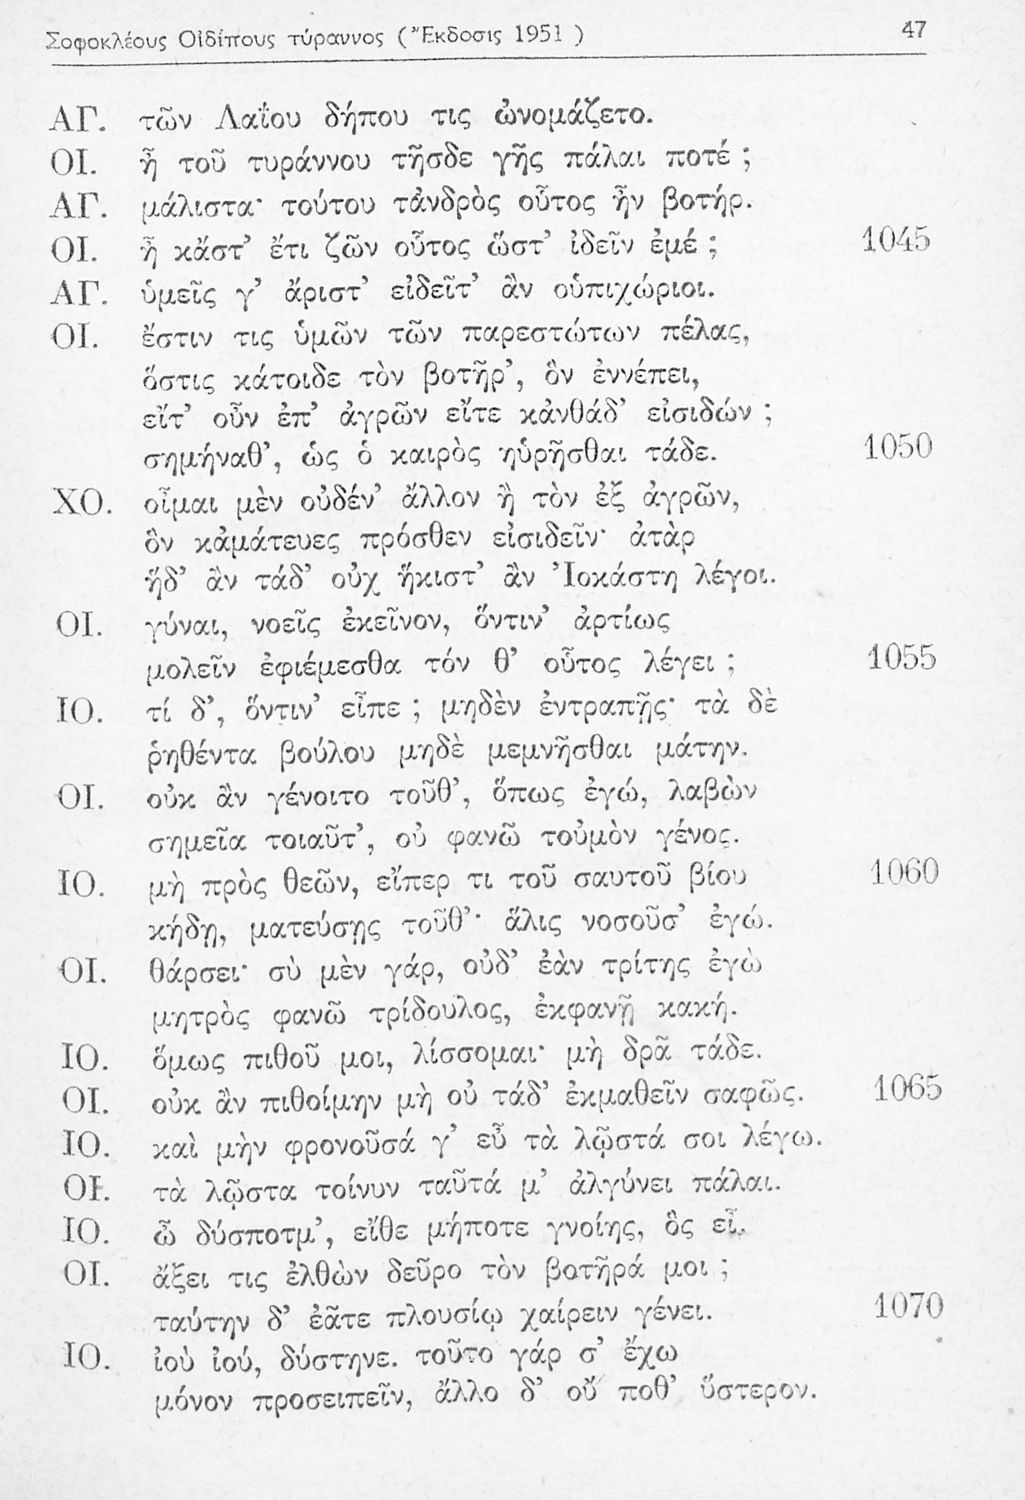 Σοφοκλέους Οἰδίπους τύραννος (Ἔκδοσις 1951 ) 47
ΑΓ. τῶν Λαΐου δήπου τις ὠνομάζετο.
ΟΙ. ἦ τοῦ τυράννου τῆσδε γῆς πάλαι ποτέ ;
ΑΓ. μάλιστα· τούτου τἀνδρὸς οὗτος ἦν βοτήρ.
ΟΙ. ἦ κἄστ’ ἔτι ζῶν οὗτος ὥστ’ ἰδεῖν ἐμέ ; 1045
ΑΓ. ὑμεῖς γ’ ἄριστ’ εἰδεῖτ’ ἂν οὑπιχώριοι.
ΟΙ. ἔστιν τις ὑμῶν τῶν παρεστώτων πέλας,
ὅστις κάτοιδε τὸν βοτῆρ’, ὃν ἐννέπει,
εἴτ’ οὖν ἐπ’ ἀγρῶν εἴτε κἀνθάδ’ εἰσιδών ;
σημήναθ’, ὡς ὁ καιρὸς ηὑρῆσθαι τάδε. 1050
ΧΟ. οἶμαι μὲν οὐδέν’ ἄλλον ἢ τὸν ἐξ ἀγρῶν,
ὃν κἀμάτευες πρόσθεν εἰσιδεῖν· ἀτὰρ
ἥδ’ ἂν τάδ’ οὐχ ἥκιστ’ ἂν Ἰοκάστη λέγοι.
ΟΙ. γύναι, νοεῖς ἐκεῖνον, ὅντιν’ ἀρτίως
μολεῖν ἐφιέμεσθα τόν θ’ οὗτος λέγει ; 1055
ΙΟ. τί δ’, ὅντιν’ εἶπε ; μηδὲν ἐντραπῇς· τὰ δὲ
ῥηθέντα βούλου μηδὲ μεμνῆσθαι μάτην.
ΟΙ. οὐκ ἂν γένοιτο τοῦθ’, ὅπως ἐγώ, λαβὼν
σημεῖα τοιαῦτ’, οὐ φανῶ τοὐμὸν γένος.
ΙΟ. μὴ πρὸς θεῶν, εἴπερ τι τοῦ σαυτοῦ βίου 1060
κήδῃ, ματεύσῃς τοῦθ’· ἅλις νοσοῦσ’ ἐγώ.
ΟΙ. θάρσει· σὺ μὲν γάρ, οὐδ’ ἐὰν τρίτης ἐγὼ
μητρὸς φανῶ τρίδουλος, ἐκφανῇ κακή.
ΙΟ. ὅμως πιθοῦ μοι, λίσσομαι· μὴ δρᾶ τάδε.
ΟΙ. οὐκ ἂν πιθοίμην μὴ οὐ τάδ’ ἐκμαθεῖν σαφῶς. 1065
ΙΟ. καὶ μὴν φρονοῦσά γ’ εὖ τὰ λῷστά σοι λέγω.
ΟΙ. τὰ λῷστα τοίνυν ταῦτά μ’ ἀλγύνει πάλαι.
ΙΟ. ὦ δύσποτμ’, εἴθε μήποτε γνοίης, ὃς εἶ.
ΟΙ. ἄξει τις ἐλθὼν δεῦρο τὸν βοτῆρά μοι ;
ταύτην δ’ ἐᾶτε πλουσίῳ χαίρειν γένει. 1070
ΙΟ. ἰοὺ ἰού, δύστηνε. τοῦτο γάρ σ’ ἔχω
μόνον προσειπεῖν, ἄλλο δ’ οὔ ποθ’ ὕστερον.